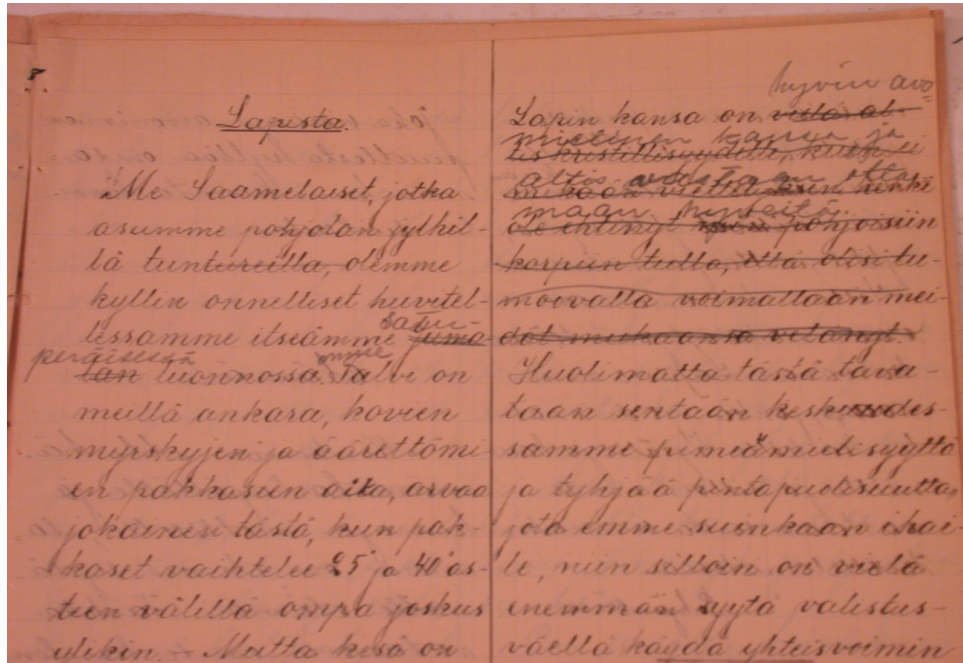 Lapista.
Me Saamelaiset, jotka
asumme pohjolan jylhil-
lä tuntureilla, olemme
kyllin onnelliset huvitel-
satu-
lessamme itseämme juma-
peräisessä
lan luonnossa. Talvi on
meillä ankara, kovien
myrskyjen ja äärettömi-
en pakkasien aika, arvaa
jokainen tästä, kun pak-
kaset vaihtelee 25 ja 40 as-
teen välillä ompa joskus
ylikin. – Mutta kesä on
hyvin avo=
Lapin kansa on vielä al-
mielinen kansa ja
tis kristillisyydelle, kun ei
altis vastaan otta
mikään viettelyksen henki
maan hyveitä.
ole ehtinyt pohjoisiin
korpiin tulla, että olisi tu-
moovalla voimallaan mei-
dät mukaansa vetänyt.
Huolimatta tästä tava-
taan sentään keskuudes-
samme pimeämielisyyttä
ja tyhjää pintapuolisuutta,
jota emme suinkaan ihai-
le, niin silloin on vielä
enemmän syytä valistus-
väellä käydä yhteisvoimin